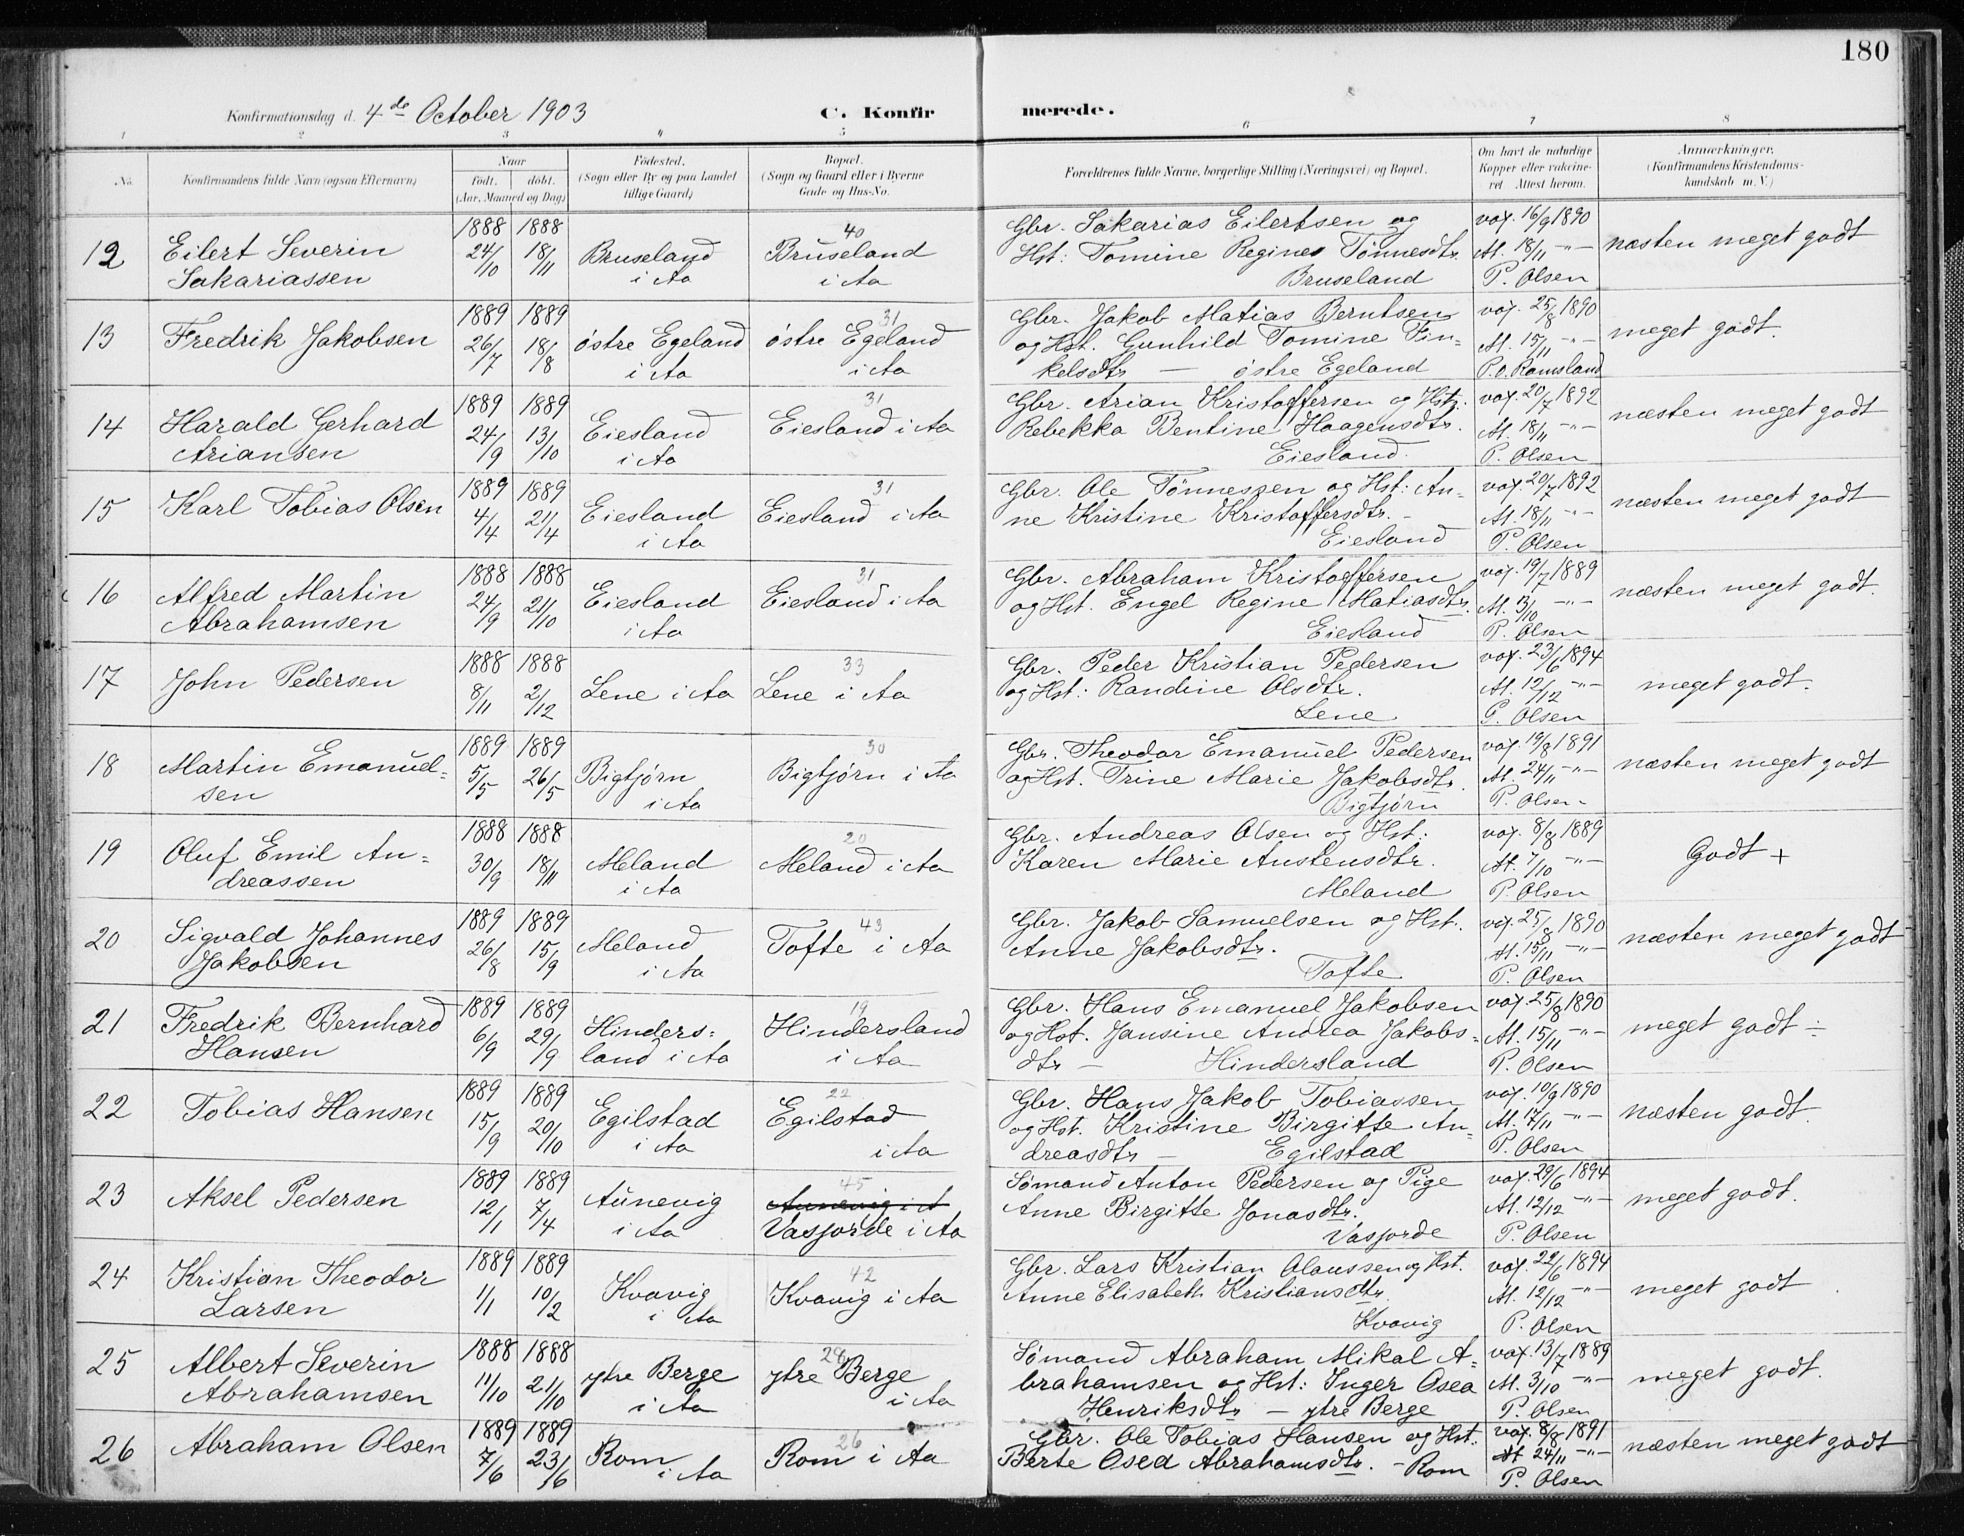 180
Konfirmationsdag d. 4de October 1903 C. Konfirmerede.
1 2 3 4 5 6 7 8
No. Konfirmandens fulde Navn (ogsaa Efternavn) Naar født. døbt. (Aar, Maaned og Dag) Fødested. (Sogn eller By og paa Landet tillige Gaard) Bopæl. (Sogn og Gaard eller i Byerne Gade og Hus-No. Forældrenes fulde Navne, borgerlige Stilling (Næringsvei) og Bopæl. Om havt de naturlige Kopper eller vakcineret Attest herom. Anmærkninger, (Konfirmandens Kristendomskundskab m. V.)
12 Eilert Severin 1888 1888 Bruseland 40 Bruseland Gbr. Sakarias Eilertsen og vax. 16/9 1890 næsten meget godt
Sakariassen 24/10 18/11 i Aa i Aa Hst: Tomine Regine Tønnesdtr. At. 18/11 -"-
Bruseland P. Olsen
13 Fredrik Jakobsen 1889 1889 østre Egeland 31 østre Egeland Gbr. Jakob Matias Berntsen vax. 25/8 1890 meget godt.
26/7 18/8 i Aa i Aa og Hst. Gunhild Tomine Fin- At. 15/11 -"-
kelsdtr — østre Egeland P.O. Ramsland
14 Harald Gerhard 1889 1889 Eiesland 31 Eiesland i Aa Gbr. Arian Kristoffersen og Hst: vax. 20/7 1892 næsten meget godt
Ariansen 24/9 13/10 i Aa Rebekka Bentine Haagensdtr. At. 18/11 -"-
Eiesland. P. Olsen
15 Karl Tobias Olsen 1889 1889 Eiesland 31 Eiesland i Aa Gbr. Ole Tønnessen og Hst: An- vax. 20/7 1892 næsten meget godt
4/4 21/4 i Aa ne Kristine Kristoffersdtr. - At. 18/11 -"-
Eiesland P. Olsen
16 Alfred Martin 1888 1888 Eiesland 31 Eiesland i Aa Gbr. Abraham Kristoffersen vax. 19/7 1889 næsten meget godt.
Abrahamsen 24/9 21/10 i Aa og Hst. Engel Regine Matiasdtr. At. 3/10 -"-
Eiesland P. Olsen
17 John Pedersen 1888 1888 Lene i Aa 33 Lene i Aa Gbr. Peder Kristian Pedersen vax. 23/6 1894 meget godt.
8/11 2/12 og Hst: Randine Olsdtr. At. 12/12 -"-
Lene P. Olsen
18 Martin Emanuel- 1889 1889 Bigtjørn 30 Bigtjørn i Aa Gbr. Theodor Emanuel Pedersen vax. 19/8 1891 næsten meget godt
sen 5/5 26/5 i Aa og Hst. Trine Marie Jakobsdtr. At. 24/11 -"-
Bigtjørn P. Olsen -
19 Oluf Emil An= 1888 1888 Meland 20 Meland i Aa Gbr. Andreas Olsen og Hst: vax. 8/8 1889 Godt +
dreassen 30/9 18/11 i Aa Karen Marie Austensdtr. At. 7/10 -"-
Meland P. Olsen
20 Sigvald Johannes 1889 1889 Meland 43 Tofte i Aa Gbr. Jakob Samuelsen og Hst. vax. 25/8 1890 næsten meget godt
Jakobsen 26/8 15/9 i Aa Anne Jakobsdtr. At. 15/11 -"-
Tofte P. Olsen
21 Fredrik Bernhard 1889 1889 Hinders= 19 Hindersland Gbr. Hans Emanuel Jakobsen vax. 25/8 1890 meget godt ÷
Hansen 6/9 29/9 land i Aa i Aa og Hst. Jansine Andrea Jakobs- At. 15/11 -"-
dtr — Hindersland P. Olsen
22 Tobias Hansen 1889 1889 Egilstad 22 Egilstad Gbr. Hans Jakob Tobiassen vax. 10/9 1890 næsten godt.
15/9 20/10 i Aa i Aa og Hst. Kristine Birgitte An- At. 17/11 -"-
dreasdtr — Egilstad P. Olsen
23 Aksel Pedersen 1889 1889 Aunevig 45 Aunevig i A Sømand Anton Pedersen og Pige vax. 29/6 1894 meget godt.
12/1 7/4 i Aa Vasjorde i Aa Anne Birgitte Jonasdtr. At. 12/12 -"-
Vasjorde P. Olsen
24 Kristian Theodor 1889 1889 Kvavig 42 Kvavig i Aa Gbr. Lars Kristian Olaussen og Hst. vax. 22/6 1894 meget godt.
Larsen 1/1 10/2 i Aa Anne Elisabeth Kristiansdtr. At. 12/12 -"-
Kvavig P. Olsen
25 Albert Severin 1888 1888 ytre Berge 28 ytre Berge Sømand Abraham Mikal A- vax. 13/7 1889 meget godt.
Abrahamsen 11/10 21/10 i Aa i Aa brahamsen og Hst: Inger Osea At. 3/10 -"-
Henriksdtr — ytre Berge P. Olsen
26 Abraham Olsen 1889 1889 Rom 26 Rom i Aa Gbr. Ole Tobias Hansen og Hst. vax. 8/8 1891 næsten meget godt
7/6 23/6 i Aa Berte Osea Abrahamsdtr. - Rom At 24/11 -"-
P. Olsen